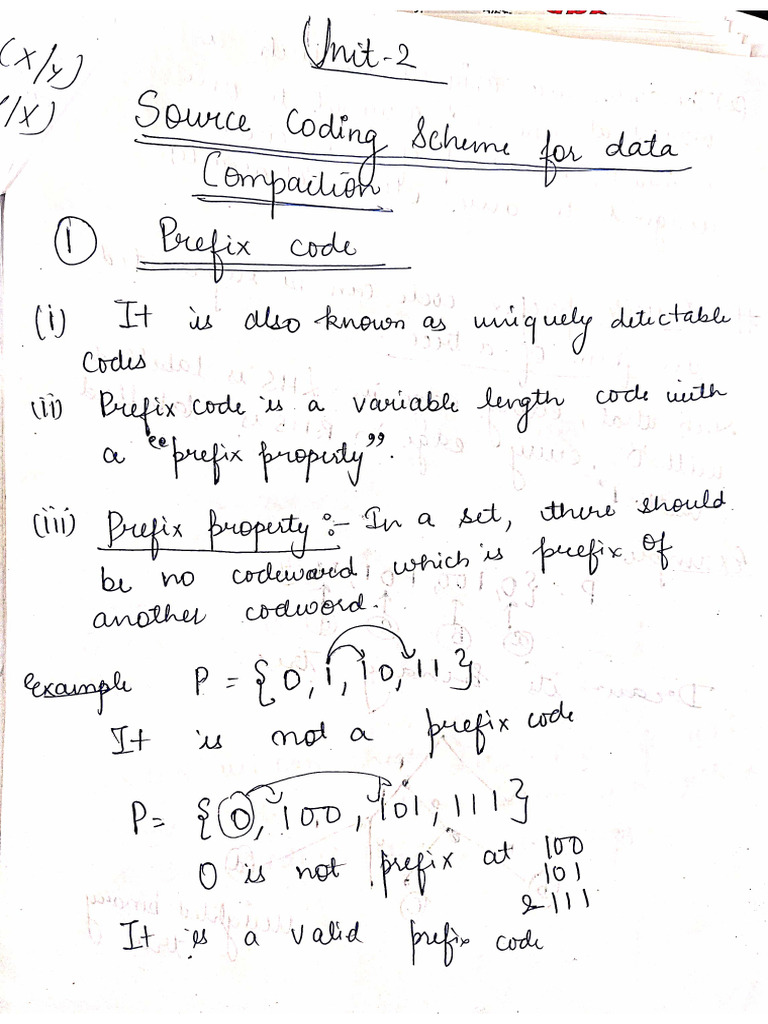 Unit-2
(X/Y)
/X)
Source Coding Scheme for data
Compaction
① Prefix code
(i) It is also known as uniquely detectable
codes
(ii) Prefix code is a variable length code with
a "prefix property".
(iii) Prefix property :- In a set, there should
be no codeword, which is prefix of
another codword.
example P = {0, 1, 10, 11}
It is not a prefix code
P = {0, 100, 101, 111}
0 is not prefix at 100
101
& 111
It is a valid prefix code